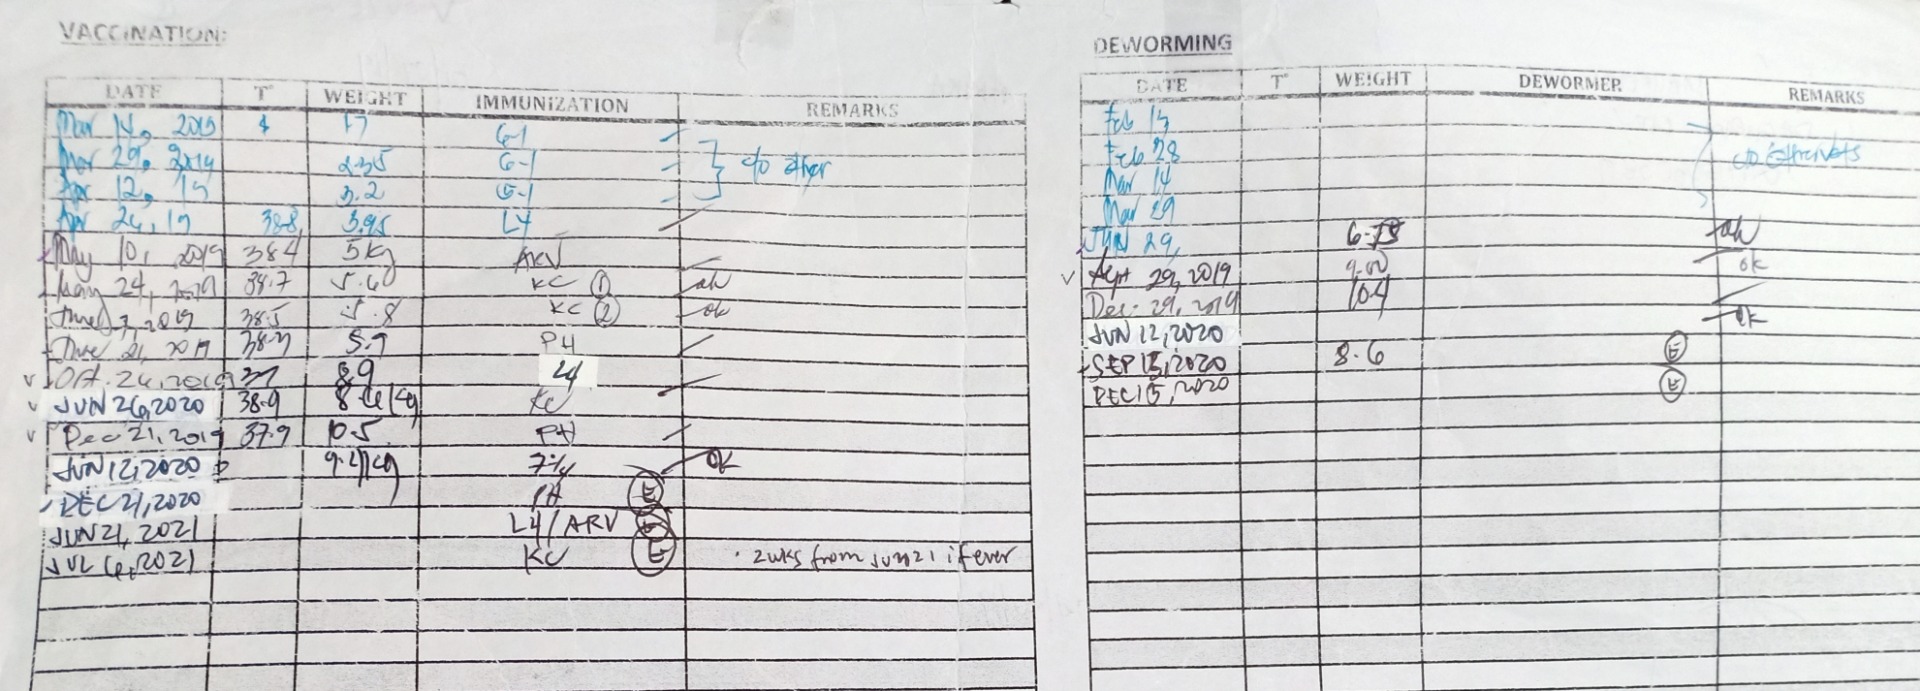 VACCINATION:
DATE T° WEIGHT IMMUNIZATION REMARKS
Mar 14, 2019 17 6-1
Mar 29, 2019 2.35 6-1 c/o other
Apr 12, 19 3.2 6-1
Apr 26, 19 38.8 3.95 L4
May 10, 2019 38.4 5kg ARV
May 24, 2019 38.7 5.60 KC 1 ok
June 7, 2019 38.5 5.8 KC 2 ok
June 21, 2019 5.7 P4
Oct. 26, 2019 37 8.9 L4
JUN 26, 2020 38.9 KC
Dec 21, 2019 37.9 10.5 PH
JUN 12, 2020 ok
DEC 21, 2020 PH E
JUN 21, 2021 L4/ARV E
JUL 6, 2021 KC E 2wks from Jun 21 if ever
DEWORMING
DATE T° WEIGHT DEWORMER REMARKS
Feb 13
Feb 28 c/o other vets
Mar 14
Mar 29
JUN 29, 6.75 ok
Sept 29, 2019 9.00 ok
Dec. 29, 2019 10.4
JUN 12, 2020 ok
SEP 15, 2020 8.6 E
DEC 15, 2020 E